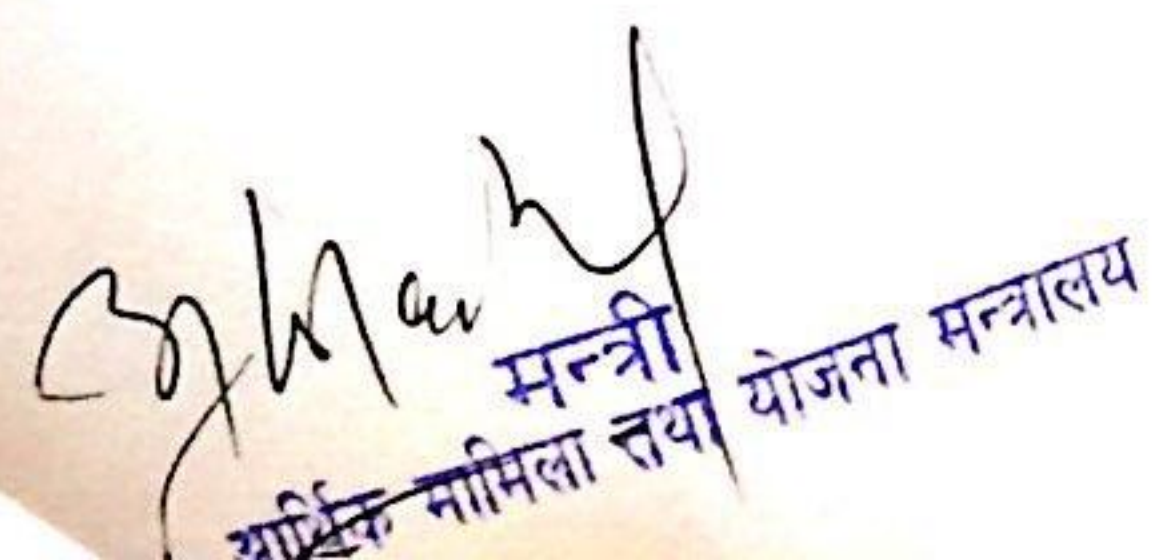 मन्त्री
आर्थिक मामिला तथा योजना मन्त्रालय